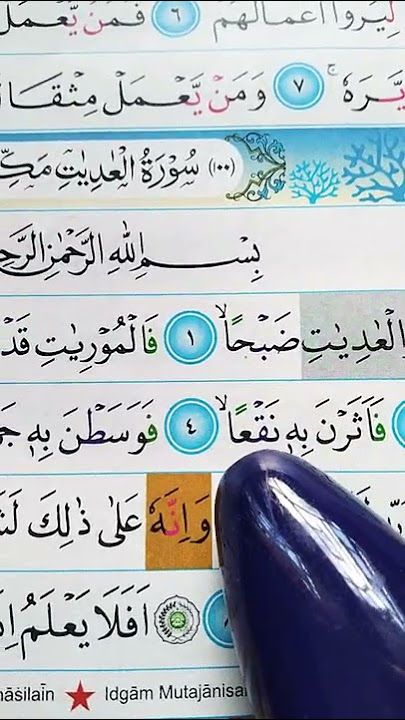 لِيُرَوْا اَعْمَالَهُمْ ٦ فَمَنْ يَّعْمَلْ
يَّرَهٗ ۚ ٧ وَمَنْ يَّعْمَلْ مِثْقَا
(١٠٠) سُوْرَةُ الْعٰدِيٰتِ مَكِّ
بِسْمِ اللّٰهِ الرَّحْمٰنِ الرَّحِ
الْعٰدِيٰتِ ضَبْحًاۙ ١ فَالْمُوْرِيٰتِ قَدْ
فَاَثَرْنَ بِهٖ نَقْعًاۙ ٤ فَوَسَطْنَ بِهٖ جَمْ
وَاِنَّهٗ عَلٰى ذٰلِكَ لَشَ
اَفَلَا يَعْلَمُ اِ
Idgām Mutajānisa